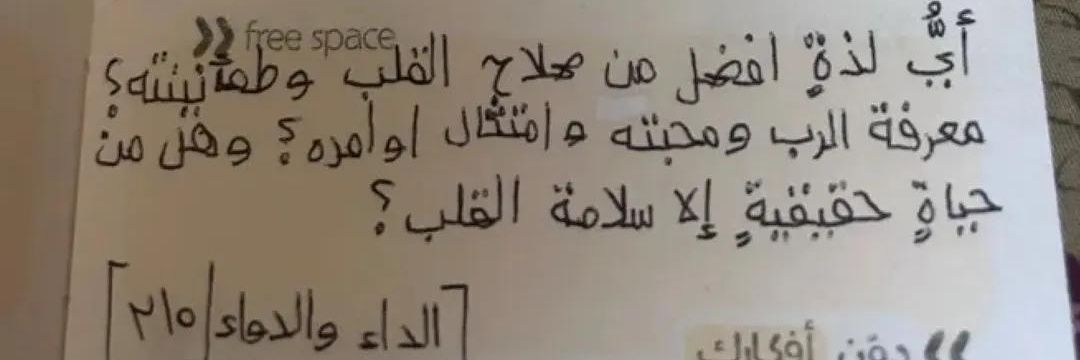 free space
أيُّ لذةٍ افضل من صلاح القلب وطمأنينته؟
معرفة الرب ومحبته وامتثال اوامره؟ وهل من
حياةٍ حقيقيةٍ إلا سلامة القلب؟
[الداء والدواء/٢١٥]
دوّن أفكارك